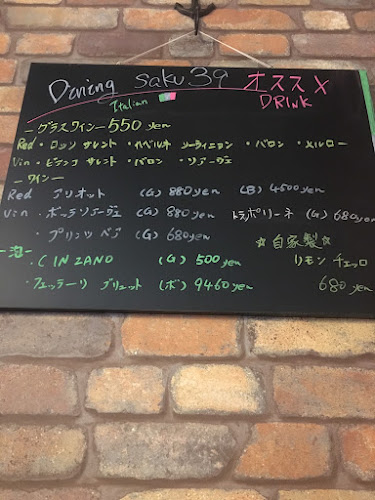 Dining saku 39 オススメ
Italian DRINK
ーグラスワインー 550 yen
Red・ロッソ サレント ・カベルネ ソーヴィニヨン ・バロン ・メルロー
Vin・ビアンコ サレント ・バロン ・ソアーヴェ
ーワインー
Red アリオット (G) 880yen (B) 4500yen
Vin・ボッテリアージェ (G) 880yen トラポリーネ (G) 680yen
・プリンツ ベア (G) 680yen ☆自家製☆
ー泡ー
・CINZANO (G) 500yen リモンチェッロ
・フェッラーリ ブリュット (ボ) 9460yen 680yen